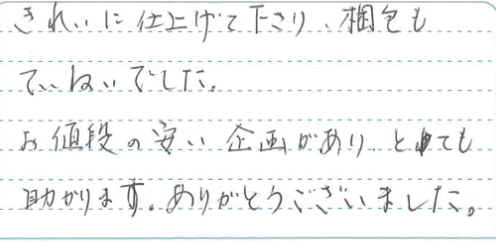 きれいに仕上げて下さり、梱包も
ていねいでした。
お値段の安い企画があり、とても
助かります。ありがとうございました。